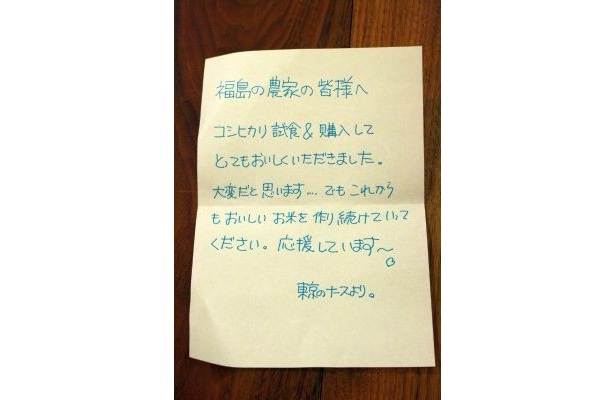 福島の農家の皆様へ
コシヒカリ試食&購入して
とてもおいしくいただきました。
大変だと思います.... でもこれから
もおいしいお米を作り続けていって
ください。応援しています〜
東京のナースより。